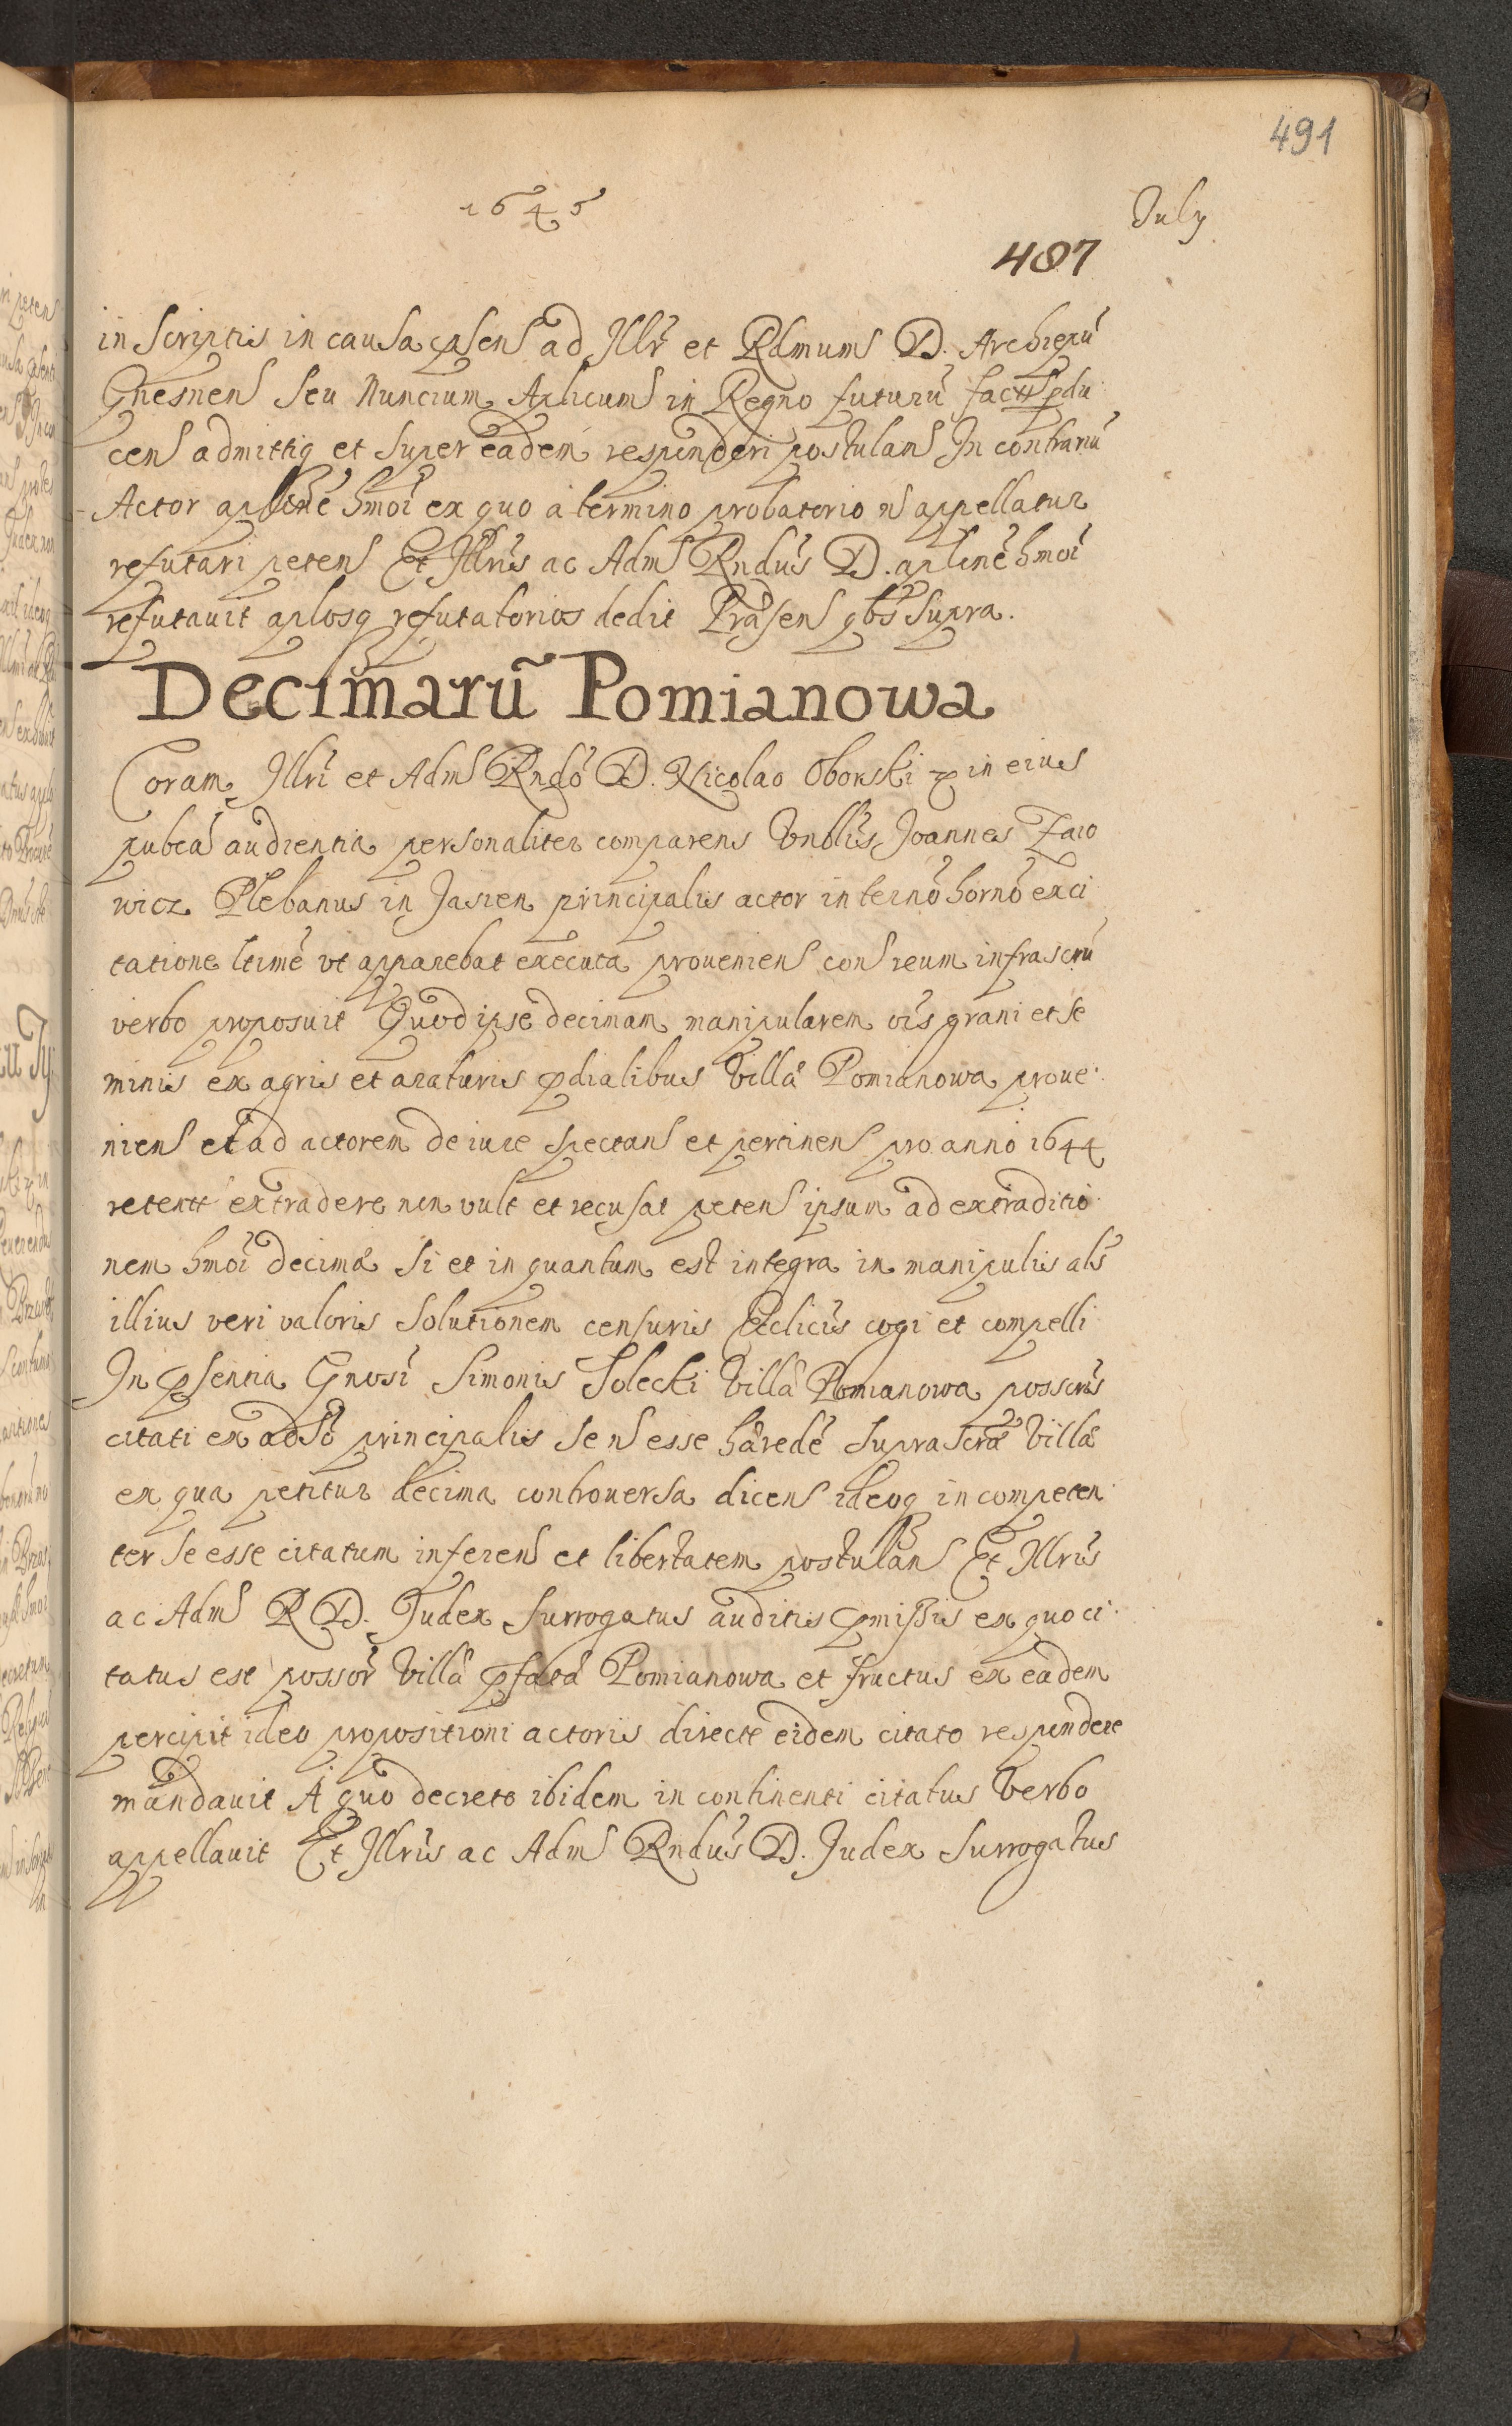 491
1645 July
487
in Scriptis in causa pñsenS ad Jllr̃ et Rdmum D. Archiepũ
GnesnenS Seu Nuncium Aplicum in Regno futurũ factS pdu
cenS admittiq et Super eadem responderi postulanS In contrariũ
Actor aplлnẽ hmoi ex quo à termino probatorio nS appellatur
refutari petenS Et Jllris ac AdmS Rndus D. aplнnẽ hmoi
refutauit aplosq refutatorios dedit PræsenS qbs Supra.
Decimarũ Pomianowa
Coram Jllri et AdmS Rndo D. Nicolao Oborski in eius
pubca audientia personaliter comparens Vnblis Joannes Zaio
wicz Plebanus in Jasien principalis actor in termo horno exci
tatione ltimẽ vt apparebat executa prouenienS conS reum infrascrũ
verbo proposuit Quod ipse decimam manipularem ois grani et se
minis ex agris et araturis pdialibus Villæ Pomianowa proue
nienS et ad actorem de iure SpectanS et pertinenS pro anno 1644
retentS extradere non vult et recusat petenS ipsum ad extraditio
nem hmoi decimæ Si et in quantum est integra in manipulis als
illius veri valoris Solutionem censuris Ecclicis cogi et compelli
In pSentia Gnosi Simonis Solecki Villæ Pomianowa possoris
citati ex adSo principalis Se nS esse hæredẽ Suprascræ Villæ
ex qua petitur decima controuersa dicenS ideoq incompeten
ter Se esse citatum inferenS et libertatem postulanS Et Jllris
ac AdmS R D. Judex Surrogatus auditis pmissis ex quo ci
tatus est possor Villæ pfatæ Pomianowa et fructus ex eadem
percipit ideo propositioni actoris directè eidem citato respondere
mandauit A quo decreto ibidem in continenti citatus Verbo
appellauit Et Jllris ac AdmS Rndus D. Judex Surrogatus